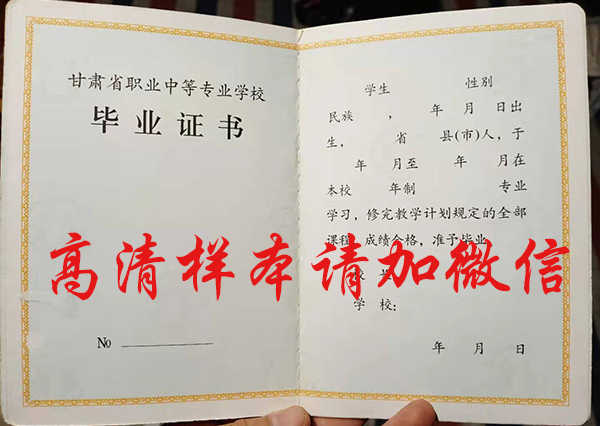 甘肃省职业中等专业学校
毕业证书
No
学生 性别
民族 , 年 月 日出
生, 省 县(市)人,于
年 月至 年 月在
本校 年制 专业
学习,修完教学计划规定的全部
课程,成绩合格,准予毕业
高清样本请加微信
校 长
学 校:
年 月 日